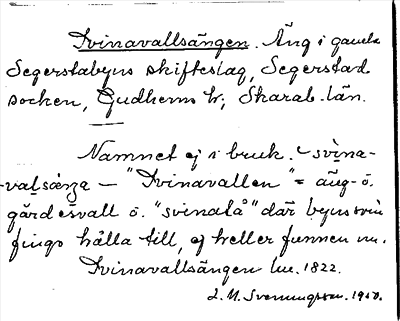 Svinavallsängen. Äng i gamla
Segerstabyns skifteslag, Segerstad
socken, Gudhems hr; Skarab. län.
Namnet ej i bruk. svina-
-valsäŋa – "Svinavallen" = äng- o.
gärdesvall o. "svinatå" där byns svin
fingo hålla till, ej heller funnen nu.
Svinavallsängen Lm. 1822.
L. M. Svenungsson. 1950.